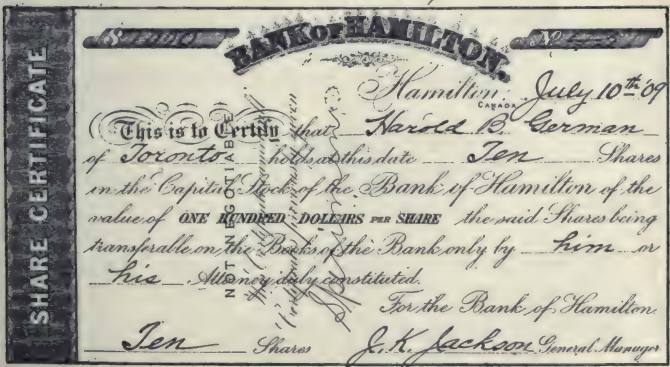 SHARE CERTIFICATE
$1000
BANK OF HAMILTON.
No
Hamilton, July 10th '09
CANADA
This is to Certify that Harold B. German
of Toronto holds at this date Ten Shares
in the Capital Stock of the Bank of Hamilton of the
value of ONE HUNDRED DOLLARS PER SHARE the said Shares being
transferable on the Books of the Bank only by him or
his Attorney duly constituted.
For the Bank of Hamilton.
Ten Shares J. K. Jackson General Manager
NOT NEGOTIABLE
Specimen